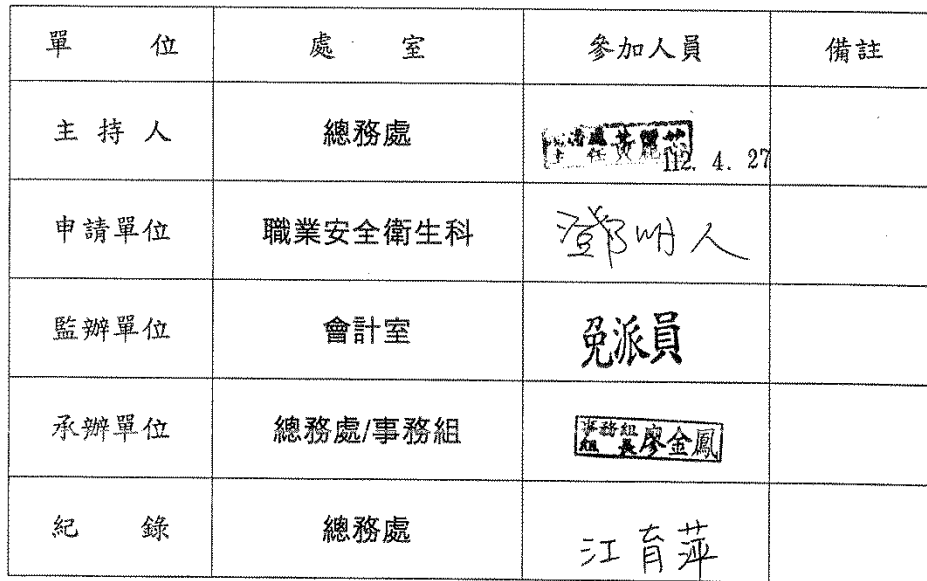 單 位 處 室 參加人員 備註
主 持 人 總務處 總務處主任黃麗萍 112. 4. 27
申請單位 職業安全衛生科 鄧明人
監辦單位 會計室 免派員
承辦單位 總務處/事務組 事務組組長廖金鳳
紀 錄 總務處 江育萍